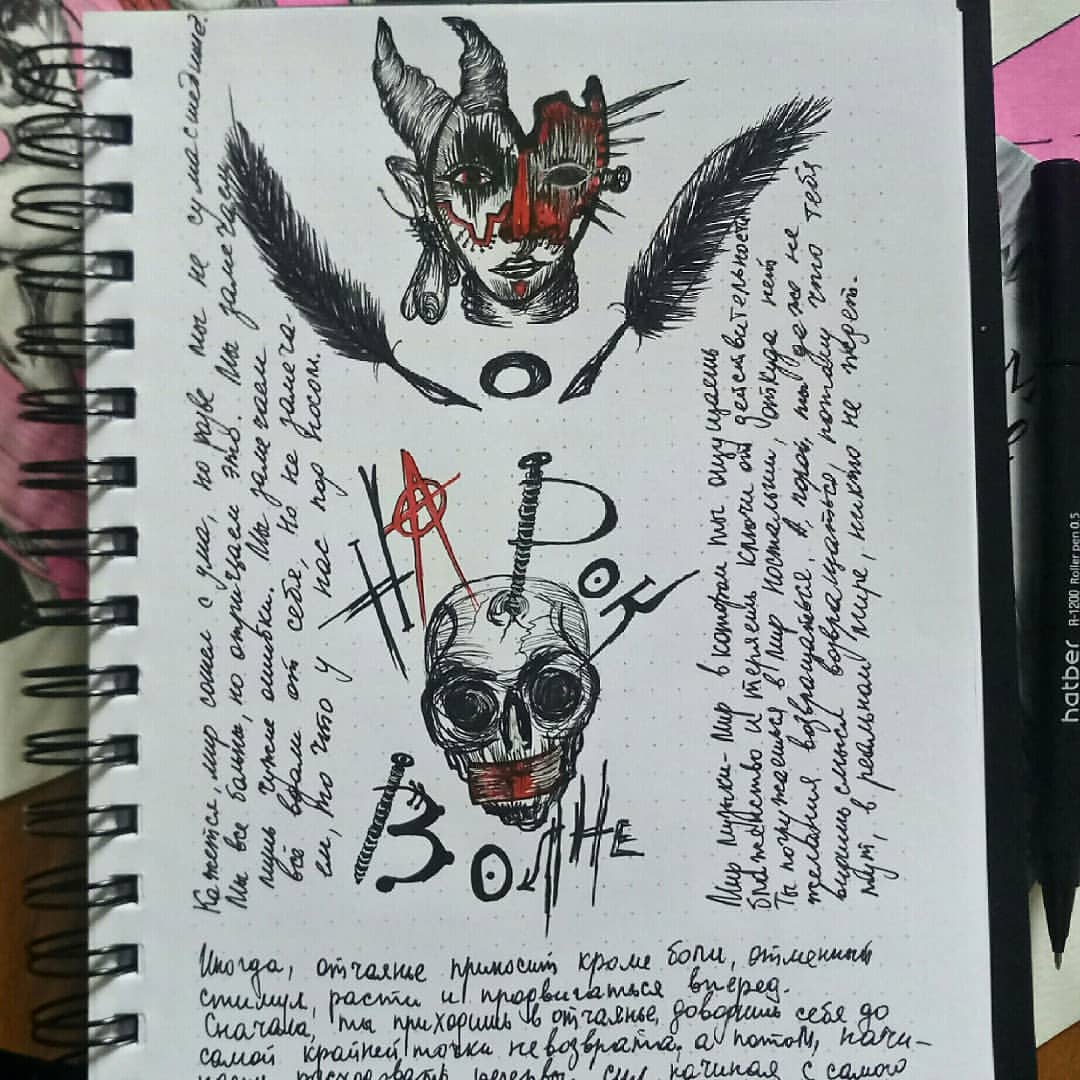 Кажется, мир сошел с ума, но разве мы не сумасшедшие?
Мы все больны, но отрицаем это. Мы замечаем
лишь чужие ошибки. Мы замечаем
всё вдали от себя, но не замеча-
ем, то что у нас под носом.
О
НА РОК
ВОЛНЕ
Мир музыки- мир в котором ты ощущаешь
блаженство и теряешь ключи от действительности.
Ты погружаешься в мир ностальгии, откуда нет
желания возвращаться. А, порой, ты даже не
видишь смысл возвращаться, потому что тебя
тут, в реальном мире, никто не ждет.
Иногда, отчаяние приносит кроме боли, отменный
стимул, расти и продвигаться вперед.
Сначала, ты приходишь в отчаянье, доводишь себя до
самой крайней точки невозврата, а потом, начи-
наешь расходовать резервы сил начиная с самого
hatber A-1200 Roller pen 0.5